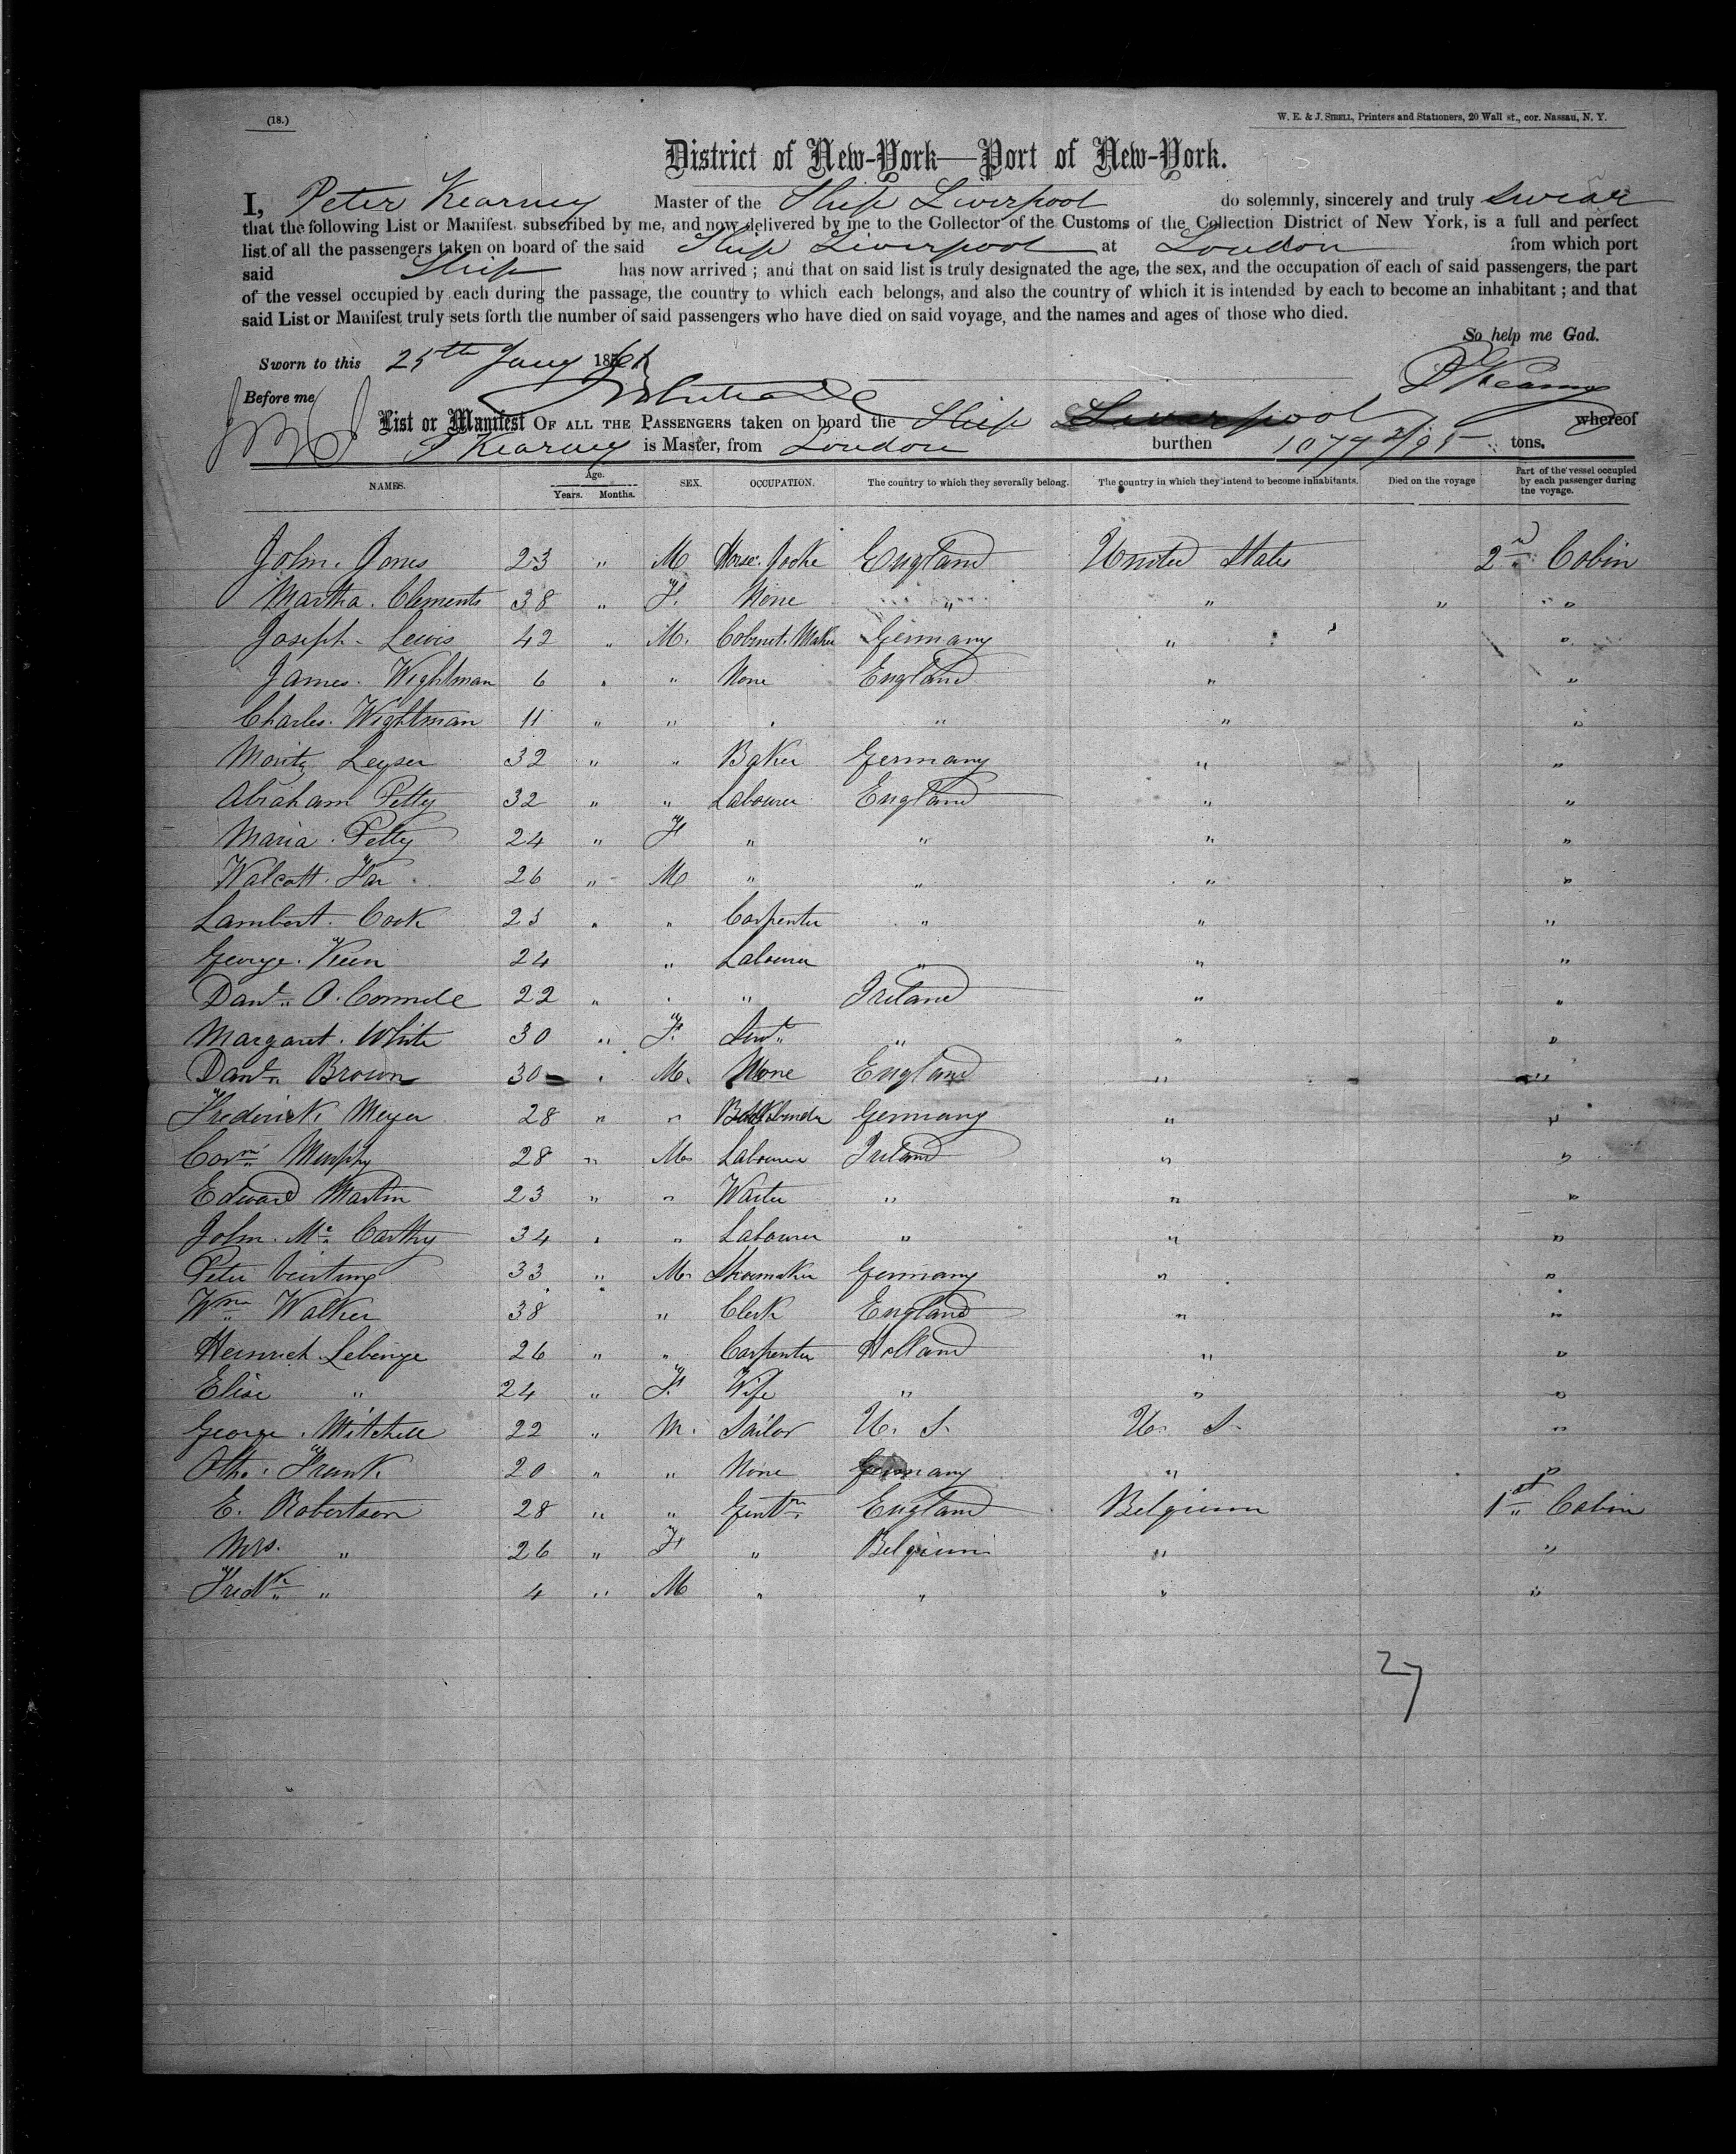 (18.)
W. E. & J. SIBELL, Printers and Stationers, 20 Wall st., cor. Nassau, N. Y.
District of New-York—Port of New-York.
I, Peter Kearney Master of the Ship Liverpool do solemnly, sincerely and truly swear
that the following List or Manifest, subscribed by me, and now delivered by me to the Collector of the Customs of the Collection District of New York, is a full and perfect
list of all the passengers taken on board of the said Ship Liverpool at London from which port
said Ship has now arrived ; and that on said list is truly designated the age, the sex, and the occupation of each of said passengers, the part
of the vessel occupied by each during the passage, the country to which each belongs, and also the country of which it is intended by each to become an inhabitant ; and that
said List or Manifest truly sets forth the number of said passengers who have died on said voyage, and the names and ages of those who died.
So help me God.
Sworn to this 25th Jany 1861
P Kearney
Before me
List or Manifest OF ALL THE PASSENGERS taken on board the Ship Liverpool whereof
P Kearney is Master, from London burthen 1077 2/95 tons.
NAMES. Age. Years. Months. SEX. OCCUPATION. The country to which they severally belong. The country in which they intend to become inhabitants. Died on the voyage Part of the vessel occupied by each passenger during the voyage.
John. Jones 23 " M Horse. Jocke England United States 2nd Cabin
Martha. Clements 38 " F. None " " " "
Joseph. Lewis 42 " M. Cabinet. Maker Germany " "
James. Wightman 6 " " None England " "
Charles. Wightman 11 " " " " " "
Moritz Leyser 32 " " Baker Germany " "
Abraham Petty 32 " " Labourer England " "
Maria. Petty 24 " F " " " "
Walcott. Far 26 " M " " " "
Lambert. Cook 23 " " Carpenter " " "
George. Keen 24 " Labourer " " "
Danl. O. Connell 22 " " " Ireland " "
Margaret. White 30 " F. Servt " " "
Danl. Brown 30 " M. None England " "
Frederick Meyer 28 " " Bookbinder Germany " "
Corns. Murphy 28 " M Labourer Ireland " "
Edward Martin 23 " " Waiter " " "
John. Mc Carthy 34 " " Labourer " " "
Peter 33 " M Shoemaker Germany " "
Wm Walker 38 " Clerk England " "
Heinrich Lebenge 26 " " Carpenter Holland " "
Elise " 24 " F. Wife " " "
George. Mitchell 22 " M. Sailor U. S. U. S. "
Otho. Frank 20 " " None Germany " "
E. Robertson 28 " " Gentn England Belgium 1st Cabin
Mrs. " 26 " F " Belgium " "
Fredk " 4 " M " " " "
27